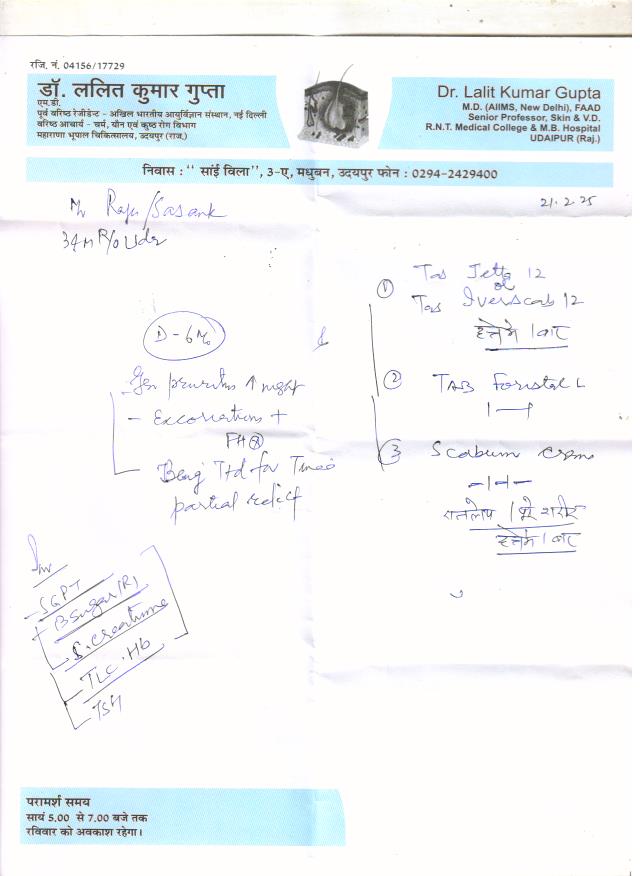 रजि. नं. 04156/17729
डॉ. ललित कुमार गुप्ता
एम.डी.
पूर्व वरिष्ठ रेजीडेन्ट - अखिल भारतीय आयुर्विज्ञान संस्थान, नई दिल्ली
वरिष्ठ आचार्य - चर्म, यौन एवं कुष्ठ रोग विभाग
महाराणा भूपाल चिकित्सालय, उदयपुर (राज.)
Dr. Lalit Kumar Gupta
M.D. (AIIMS, New Delhi), FAAD
Senior Professor, Skin & V.D.
R.N.T. Medical College & M.B. Hospital
UDAIPUR (Raj.)
निवास : " सांई विला", 3-ए, मधुबन, उदयपुर फोन : 0294-2429400
21.2.25
Mr Raju/Sasank
34M R/o Udr
D-6mo
Gen pruritus ↑ night
- Excoriations +
FH
Being Ttd for Tinea
partial relief
Inv
- SGPT
B Sugar (R)
S. Creatinine
TLC. Hb
TSH
① Tab 12
or
Tab Iverscab 12
हफ्ते में 1 बार
② TAB L
1—1
③ Scabum
हफ्ते में 1 बार
परामर्श समय
सायं 5.00 से 7.00 बजे तक
रविवार को अवकाश रहेगा।